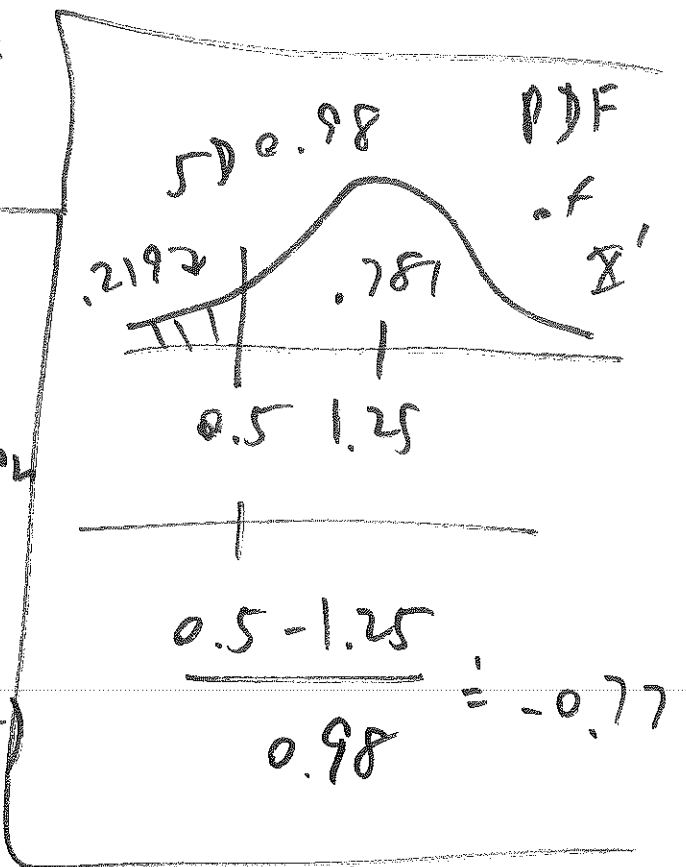 SD 0.98
PDF
of
X'
.2192
.781
0.5 1.25
0.5 - 1.25
0.98
≐ -0.77